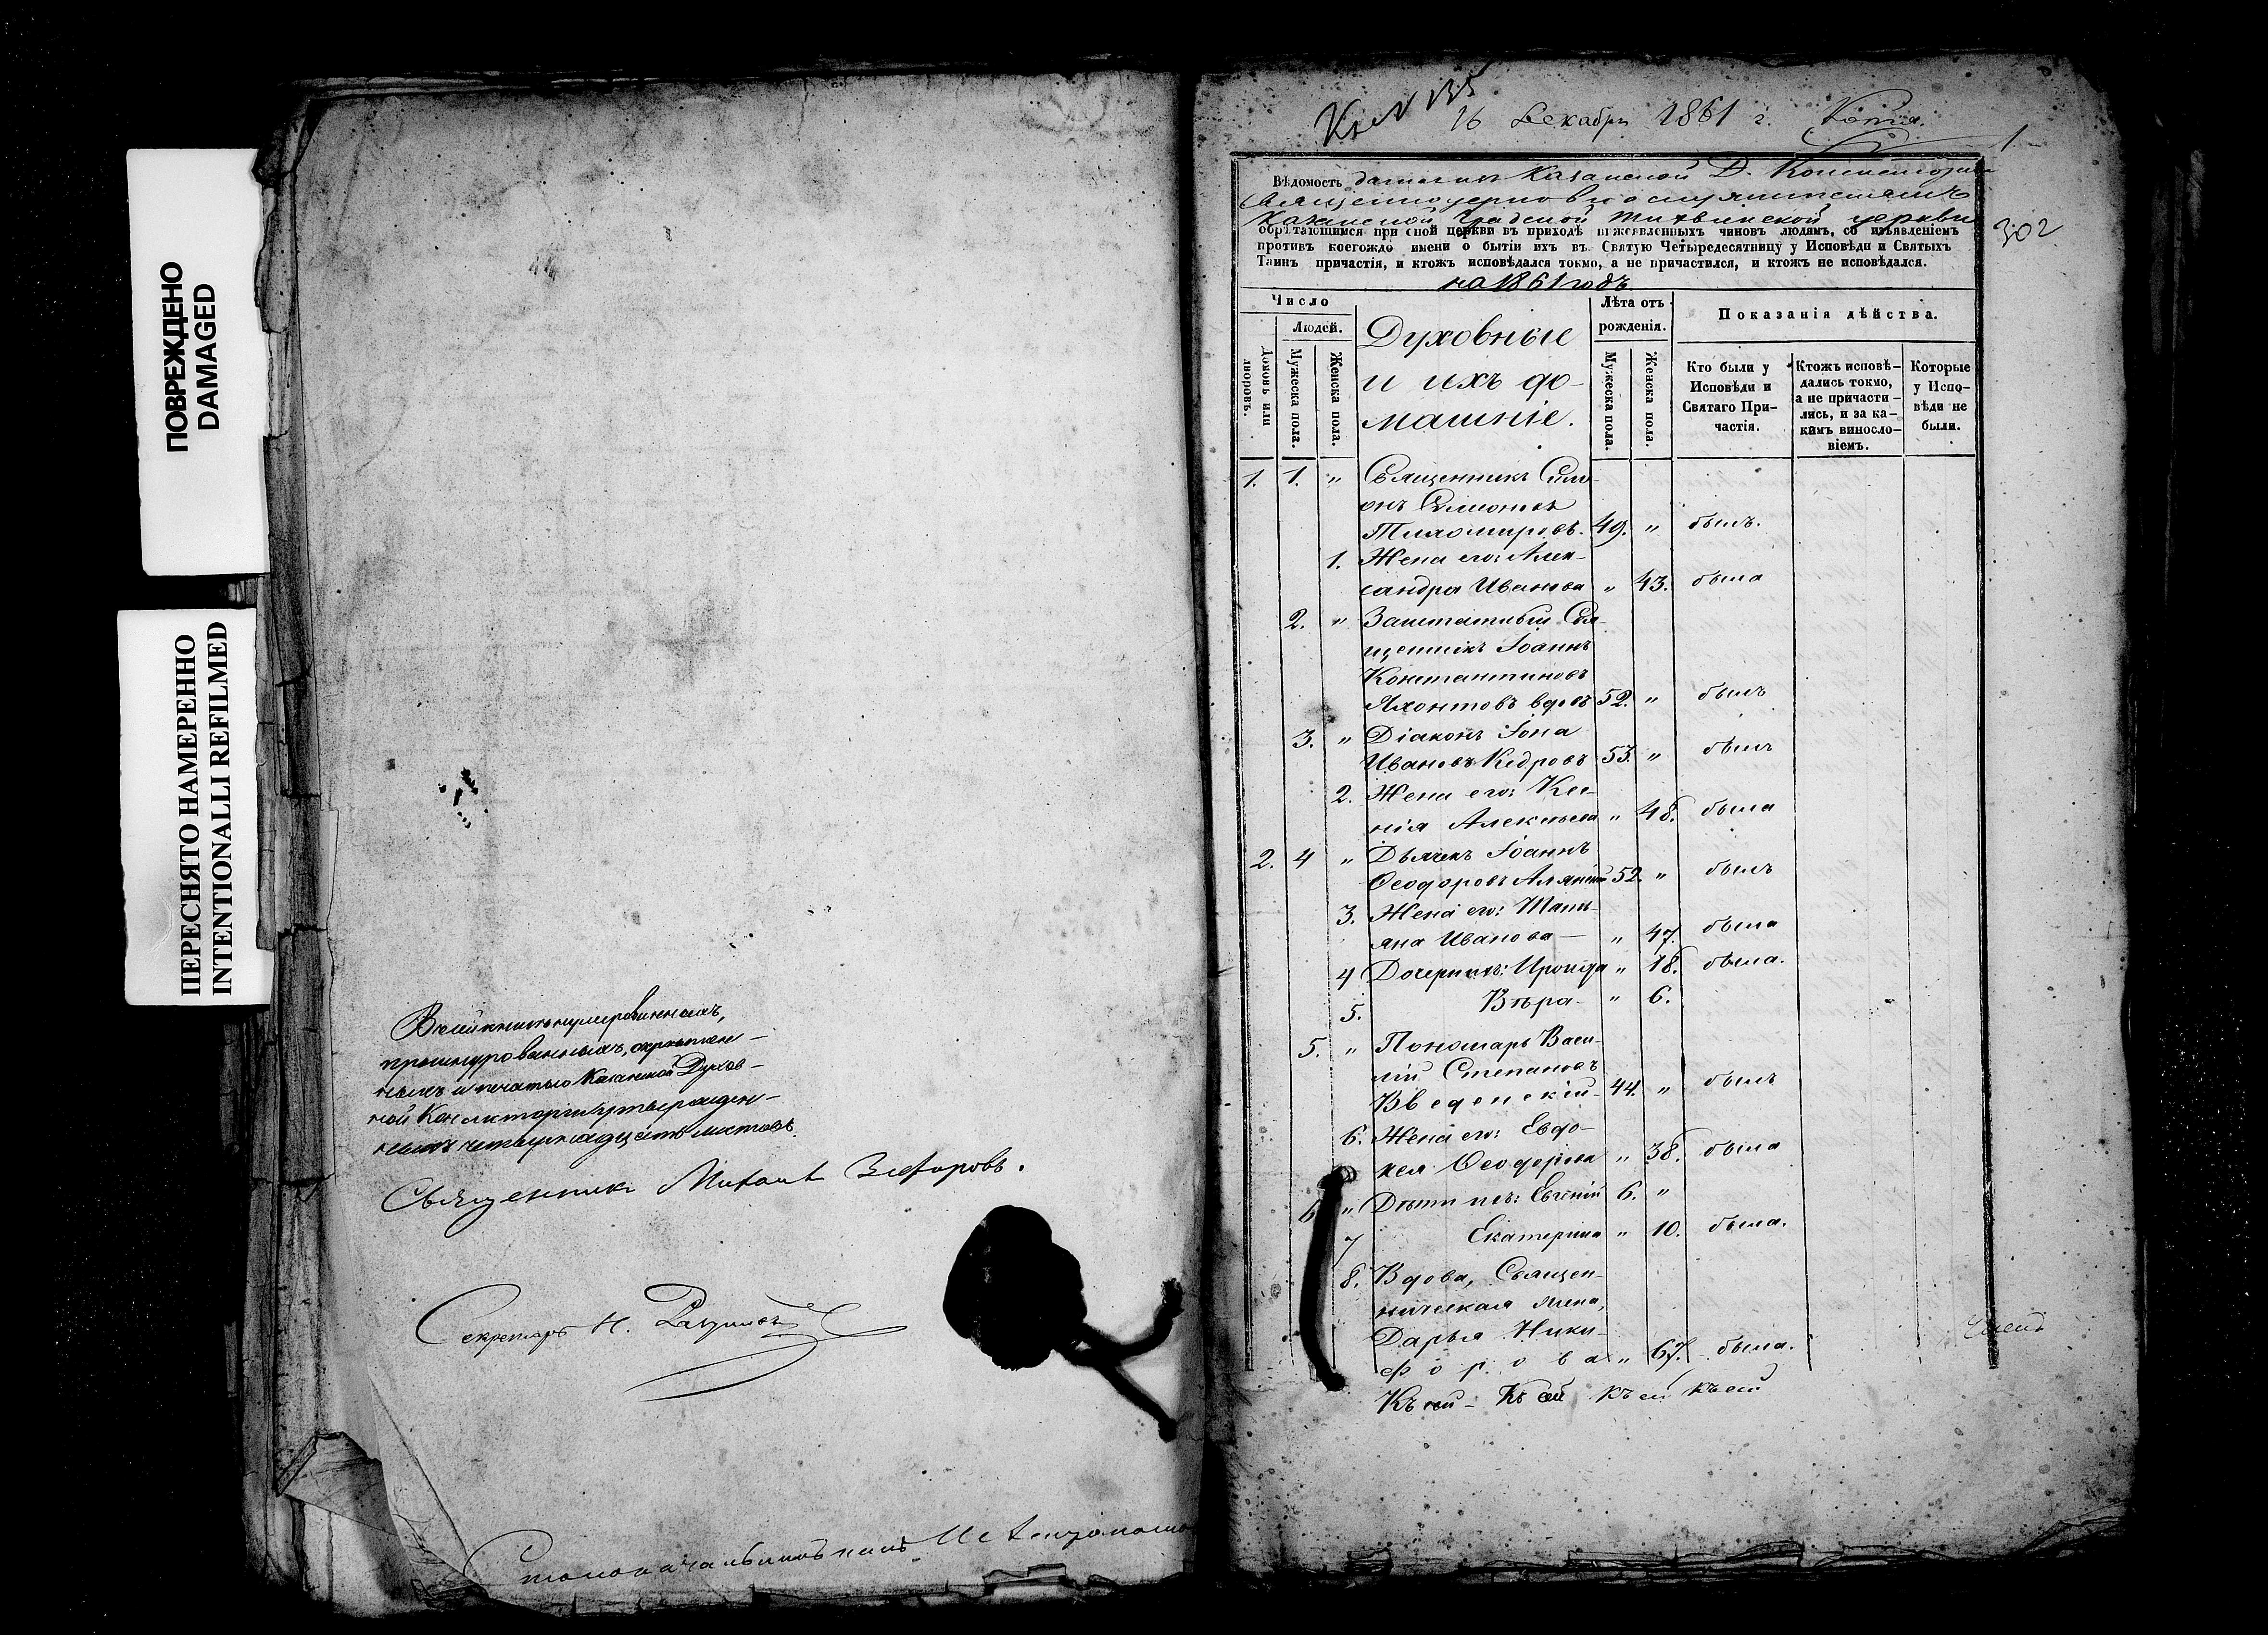 ПОВРЕЖДЕНО
DAMAGED
ПЕРЕСНЯТО НАМЕРЕННО
INTENTIONALLI REFILMED
В сей книге нумерованныхъ,
прошнурованныхъ, скреплен-
ныхъ и печатью Казанской Духов-
ной Консисторiи утвержден-
ныхъ четырнадцать листовъ.
Священникъ Михаилъ
Секретарь Н.
Столоначальникъ
16 Декабря 1861 г. Копія.
1
302
Вѣдомость данная изъ Казанской Д. Консисторіи
Священноцерковнослужителямъ
Казанской Градской Тихвинской церкви
обрѣтающимся при оной церкви въ приходѣ нижеявленныхъ чиновъ людямъ, съ изъявленіемъ
противъ коегождо имени о бытіи ихъ въ Святую Четыредесятницу у Исповѣди и Святыхъ
Таинъ причастія, и ктожъ исповѣдался токмо, а не причастился, и ктожъ не исповѣдался.
на 1861 годъ
Число
Людей.
Домовъ или дворовъ.
Мужеска пола.
Женска пола.
Духовные
и ихъ до-
машніе.
Лѣта отъ рожденія.
Мужеска пола.
Женска пола.
Показанія дѣйства.
Кто были у Исповѣди и Святаго При-частія.
Ктожъ исповѣ-дались токмо, а не причасти-лись, и за ка-кимъ винословіемъ.
Которые у Испо-вѣди не были.
1. 1. " Священникъ Сим-
онъ Симоновъ
Тихомировъ. 49. " былъ.
1. Жена его: Алек-
сандра Иванова " 43. была
2. " Заштатный Свя-
щенникъ Іоаннъ
Константиновъ
Яхонтовъ вдовъ 52. " былъ
3. " Діаконъ Іона
Ивановъ Кедровъ 53. " былъ
2. Жена его: Ксе-
нія Алексѣева " 48. была
2. 4 " Дьячекъ Іоаннъ
Ѳеодоровъ 52. " былъ
3. Жена его: Тать-
яна Иванова — " 47. была
4 Дочери ихъ: Ираида " 18. была.
5. Вѣра- " 6.
5. " Пономарь Васи-
лій Степановъ
Введенскій- 44. " былъ
6. Жена его: Евдо-
кея Ѳеодорова " 38. была
6 " Дѣти ихъ: Евгеній 6. "
7 Екатерина " 10. была.
8. Вдова, Священ-
ническая жена,
Дарья Ники-
форова " 67. была.
Къ сей - Къ сей къ сей къ сей